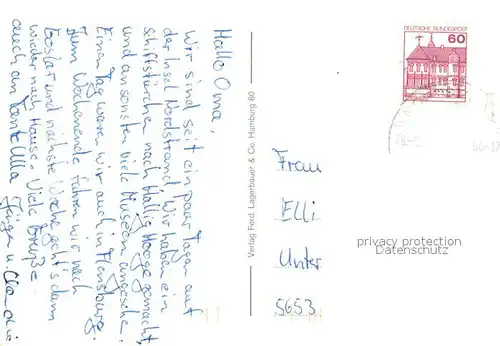 Hallo Oma,
Wir sind seit ein paar Tagen auf
der Insel Nordstrand. Wir haben ein
schiffstürchen nach Hallig Hooge gemacht,
und ansonsten viele Museen angesehen.
Einen Tag waren wir auch in Flensburg.
Zum Wochenende fahren wir nach
Goslar und nächste Woche geht's dann
wieder nach Hause. Viele Grüße
auch an Tante Ulla Jürgen u. Claudia
Verlag Ferd. Lagerbauer & Co. Hamburg 60
DEUTSCHE BUNDESPOST
60
Frau
Elli
Unter
5653
privacy protection
Datenschutz